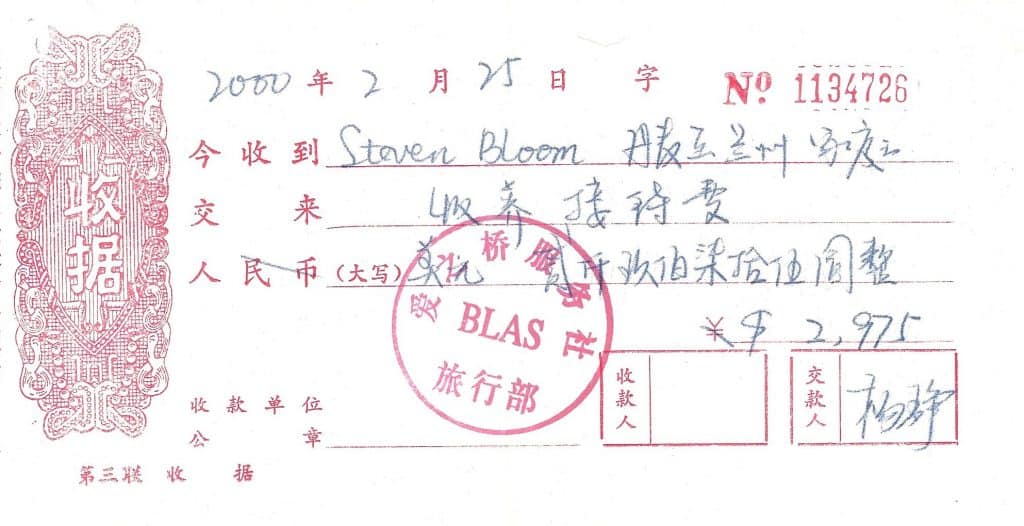 收据
2000 年 2 月 25 日 字 Nº 1134726
今收到 Steven Bloom 兰州
交来 收养接待费
人民币(大写) 美元 贰仟玖佰柒拾伍圆整
¥ $ 2,975
爱之桥服务社
BLAS
旅行部
收款单位
公章
收款人
交款人 杨
第三联 收据